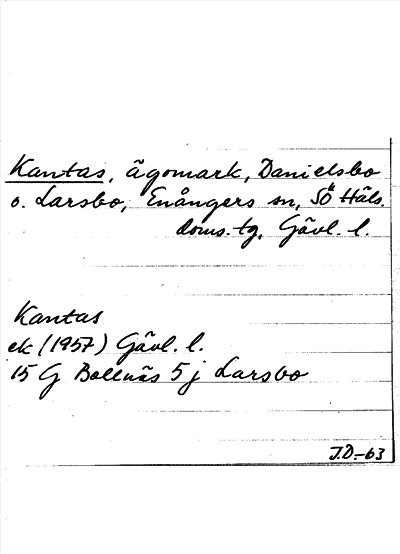 Kantas, ägomark, Danielsbo
o. Larsbo, Enångers sn, SÖ Häls.
doms. tg, Gävl. l.
Kantas
ek (1957) Gävl. l.
15 G Bollnäs 5 j Larsbo
J.D.-63